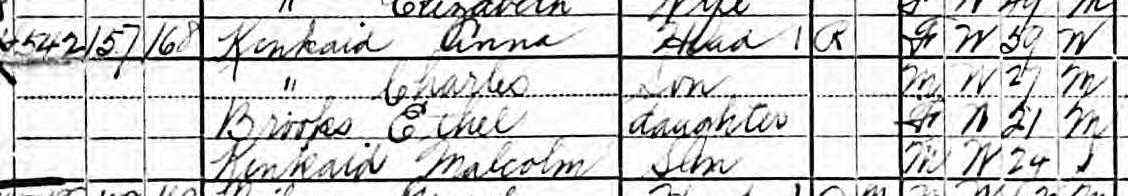 " Elizabeth Wife F W 49 M
4542 157 168 Kinkaid Anna Head 1 R F W 59 W
" Charles Son M W 27 M
Brooks Ethel daughter F W 21 M
Kinkaid Malcolm Son M W 24 S